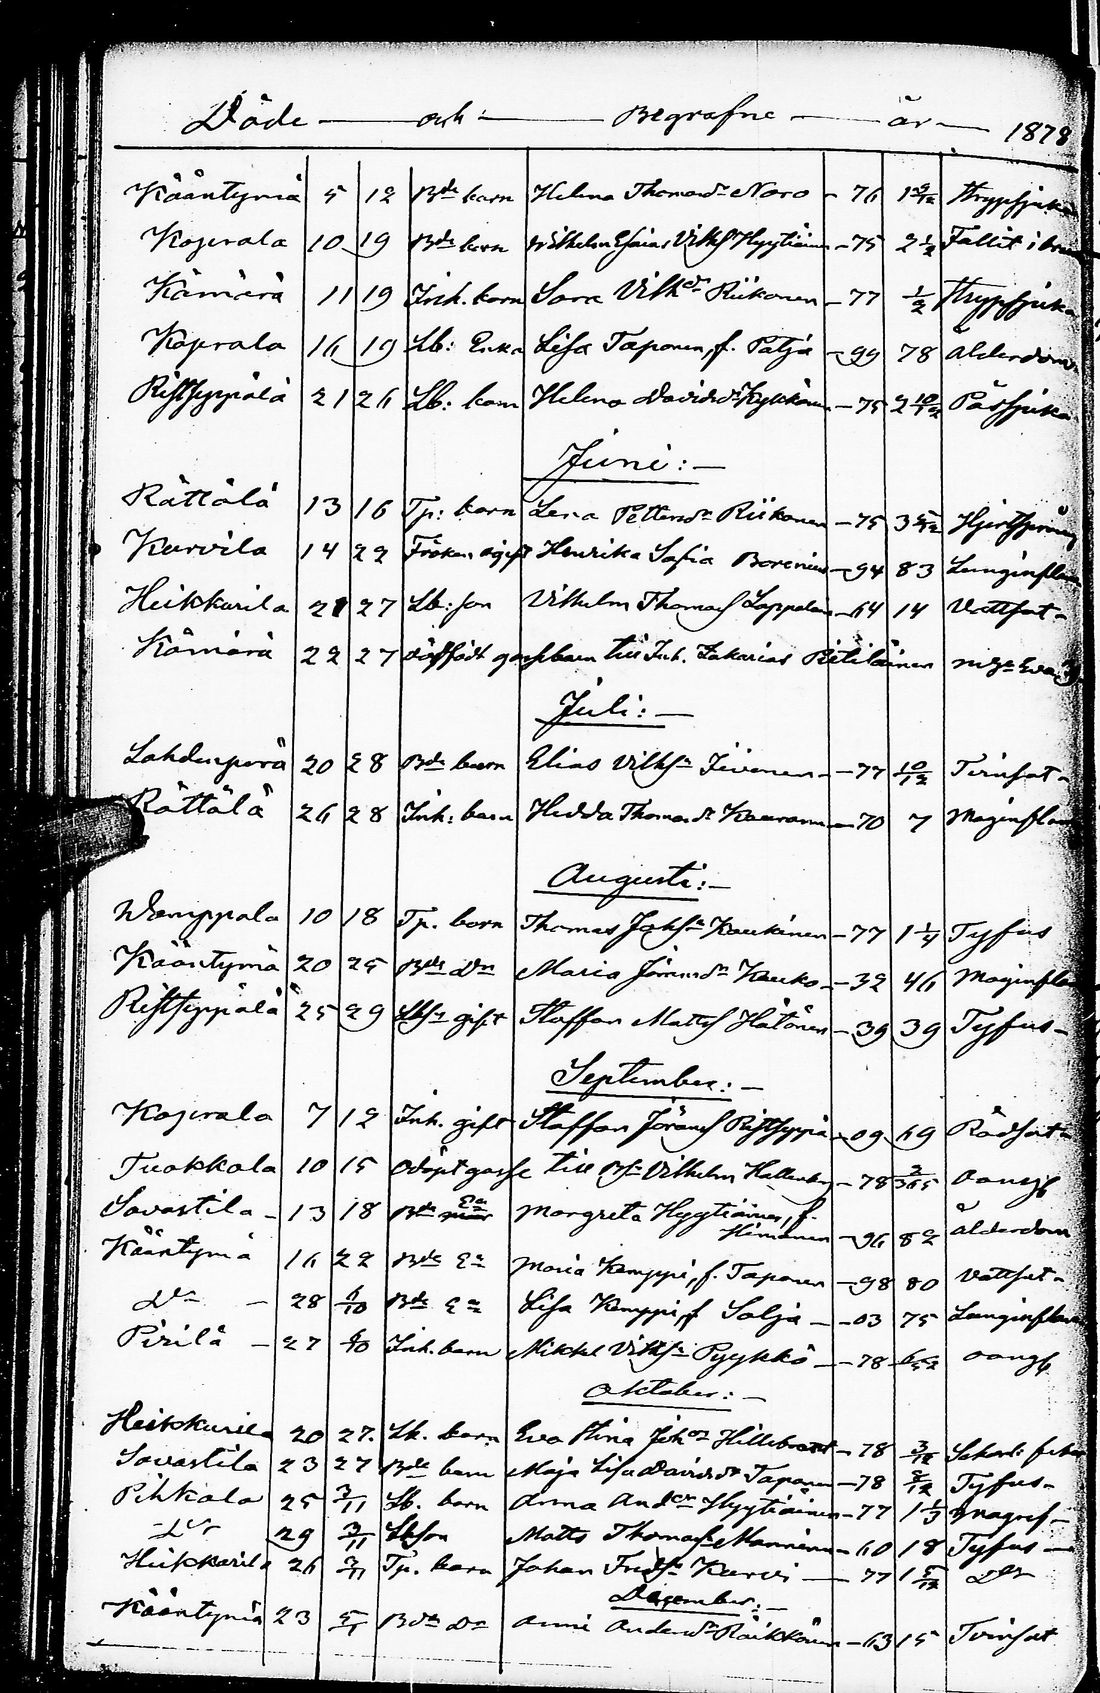 Döde och Begrafne år 1878
Kääntymä 5 12 Bde barn Helena Thomasdr Noro - 76
Koprala 10 19 Bde barn Wilhelm Esaias Vilhs Hyytiäinen - 75 2 1/2 Fallit i
Kämärä 11 19 Inh. barn Sara Vilhdr Riikonen - 77 1/2
Koprala 16 19 Lb: Enka Lisa Taponen, f. Patja - 99 78 ålderdom
Ristseppälä 21 26 Lb: barn Helena Davidsdr Pykkönen - 75 2 10/12
Juni:
Rättälä 13 16 Tp: barn Lena Pettersdr Riikonen - 75 3 5/12
Karvila 14 22 Fröken ogift Henrika Sofia Borenius - 94 83 Lunginflam
Heikkurila 21 27 Lb: son Vilhelm Thomass Lappalain - 64 14 Vattsot
Kämärä 22 27 dödfödt gossbarn till Inh. Zakarias Pitiläinen
Juli:
Lahdenperä 20 28 Bde barn Elias Vilhsn Iivonen - 77 10/12 Tvinsot
Rättälä 26 28 Inh: barn Hedda Thomasdr Kaaranen - 70 7 Maginflam
Augusti:
Wamppala 10 18 Tp. barn Thomas Johsn Kaukinen - 77 1 1/4 Tyfus
Kääntymä 20 25 Bde Dr Maria Jöransdr Kauko - 32 46 Maginflam
Ristseppälä 25 29 Lbsn gift Staffan Matts Hätönen - 39 39 Tyfus
September:
Koprala 7 12 Inh. gift Staffan Jörans Ristseppä - 09 69 Rödsot
Tuokkola 10 15 Odöpt gosse till Bsn Vilhelm Kallenberg - 78 3/365 oangf
Savastila 13 18 Bde Ea Margreta Hyytiäinen, f.
Himanen - 96 82 ålderdom
Kääntymä 16 22 Bde Ea Maria Kemppi, f. Taponen - 98 80 Vattsot
Do 28 6/10 Bde Ea Lisa Kemppi, f Salja - 03 75 Lunginflam
Pirilä 27 6/10 Inh. barn Mikkel Vilhsn Pyykkö - 78 oangf
Oktober:
Heikkurila 20 27. Lb. barn Eva Stina Johdr Hillebrant - 78 3/12
Savastila 23 27 Bde barn Maja Lisa Davidsdr Taponen - 78 Tyfus
Pihkala 25 3/11 Lb. barn Anna Anddr Hyytiäinen - 77 1 1/3
Do 29 3/11 Lbson Matts Thomass Manninen - 60 18 Tyfus
Heikkurila 26 3/11 Tp. barn Johan Fredsn Karvi - 77 1 5/12 Do
December:
Kääntymä 23 5/1 Bde Dr Anni Andersdr Räikkönen - 63 15 Tvinsot